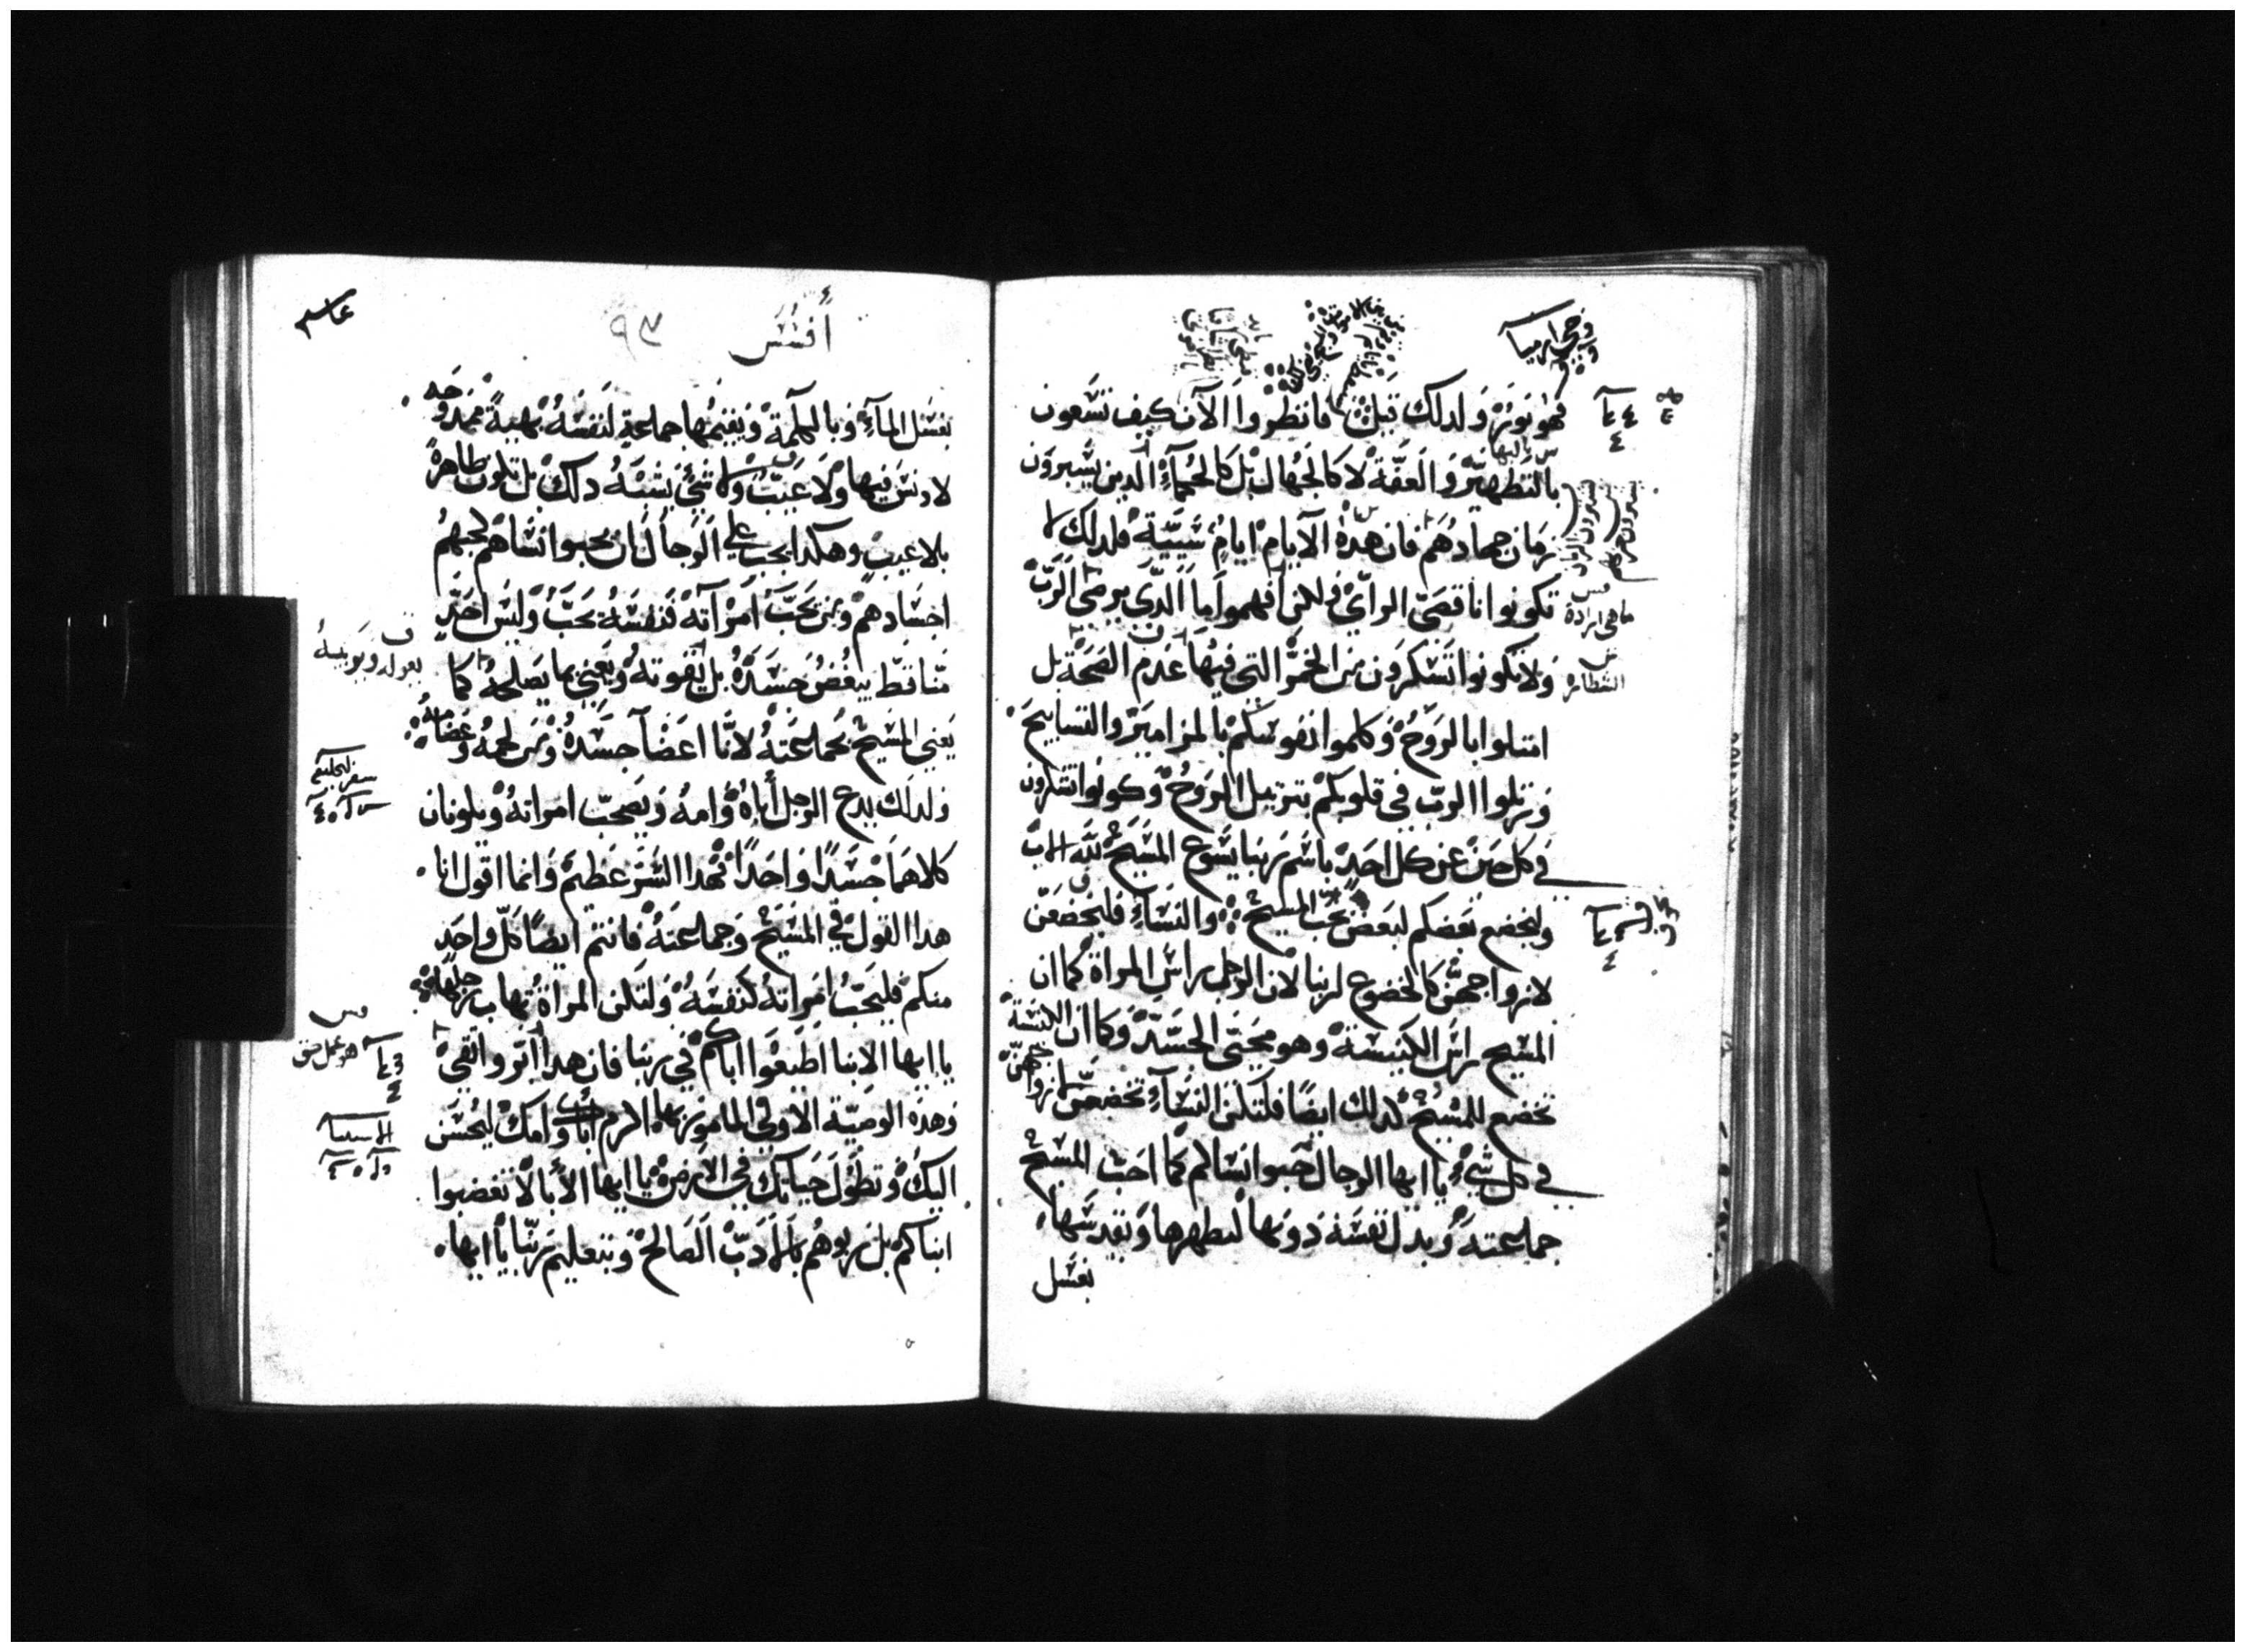 وحي ارميا
فهو نور ولدلك قيل فانظروا الان كيف تسعون
بالتطهير والعفة لا كالجهال بل كالحكمآء الدين يشترون
زمان جهادهم فان هده الايام ايام شييية فلدلك لا
تكونوا ناقصي الراي ولاكن افهموا ما الدي يرضي الرب
ولا تكونوا تسكرون من الخمر التي فيها عدم الصحة بل
امتلوا بالروح وكلموا نفوسكم بالمزامير والتسابيح
ورتلوا الرب في قلوبكم بترتيل الروح وكونوا تشكرون
في كل حين عن كل احد باسم ربنا يسوع المسيح لله الاب
وليخضع بعضكم لبعض بحب المسيح والنسآء فليخضعن
لازواجهن كالخضوع لربنا لان الرجل راس المراة كما ان
المسيح راس الكنيسة وهو محيي الجسد وكما ان الكنيسة
تخضع للمسيح كدلك ايضا فلتكن النسآء تخضعن لازواجهن
في كل شي يا ايها الرجال حبوا نساكم كما احب المسيح
جماعته وبدل نفسه دونها ليطهرها ويقدسها
بغسل
أفسس
٩٣
بغسل المآء وبالكلمة ويقيمها جماعة لنفسه بهية ممدوحه
لا دنس فيها ولا عيب ولا شي يشبه دلك بل تكون طاهرة
بلا عيب وهكدا يجب علي الرجال ان يحبوا نساهم كحبهم
اجسادهم ومن يحب امراته فنفسه يحب وليس احد
منا قط يبغض جسده بل يقوته ويعني بما يصلحه كما
يعني المسيح بجماعته لانا اعضآ جسده ومن لحمه وعظامه
ولدلك يدع الرجل أباه وامه ويصحب امراته ويكونان
كلاهما جسدا واحدا فهدا السر عظيم وانما اقول انا
هدا القول في المسيح وجماعته فانتم ايضا كل واحد
منكم فليحب امراته كنفسه ولتكن المراة تهاب رجلها
يا ايها الابنا اطيعوا اباكم في ربنا فان هدا ابر واتقي
وهذه الوصية الاولي المامور بها اكرم أباك وامك ليحسن
اليك وتطول حياتك في الارض يا ايها الأبا لا تغضبوا
ابناكم بل ربوهم بالادب الصالح وبتعليم ربنا يا ايها